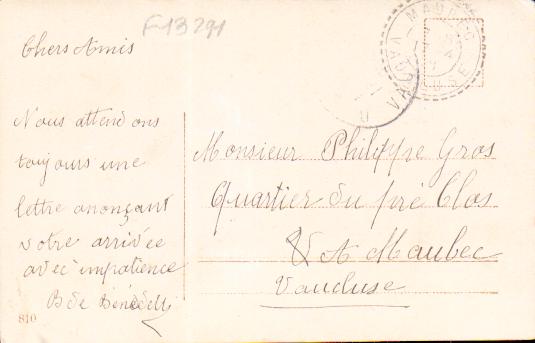 F-13291
Chers Amis
Nous attendons
toujours une
lettre anonçant
votre arrivée
avec impatience
B de Bénédetti
810
MAUBEC
VAUCLUSE
Monsieur Philippe Gros
Quartier du pré Clos
A Maubec
Vaucluse